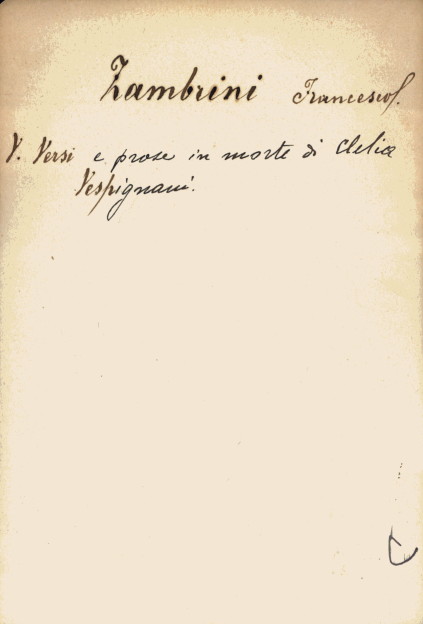 Zambrini Francesco.
V. Versi e prose in morte di Clelia
Vespignani.